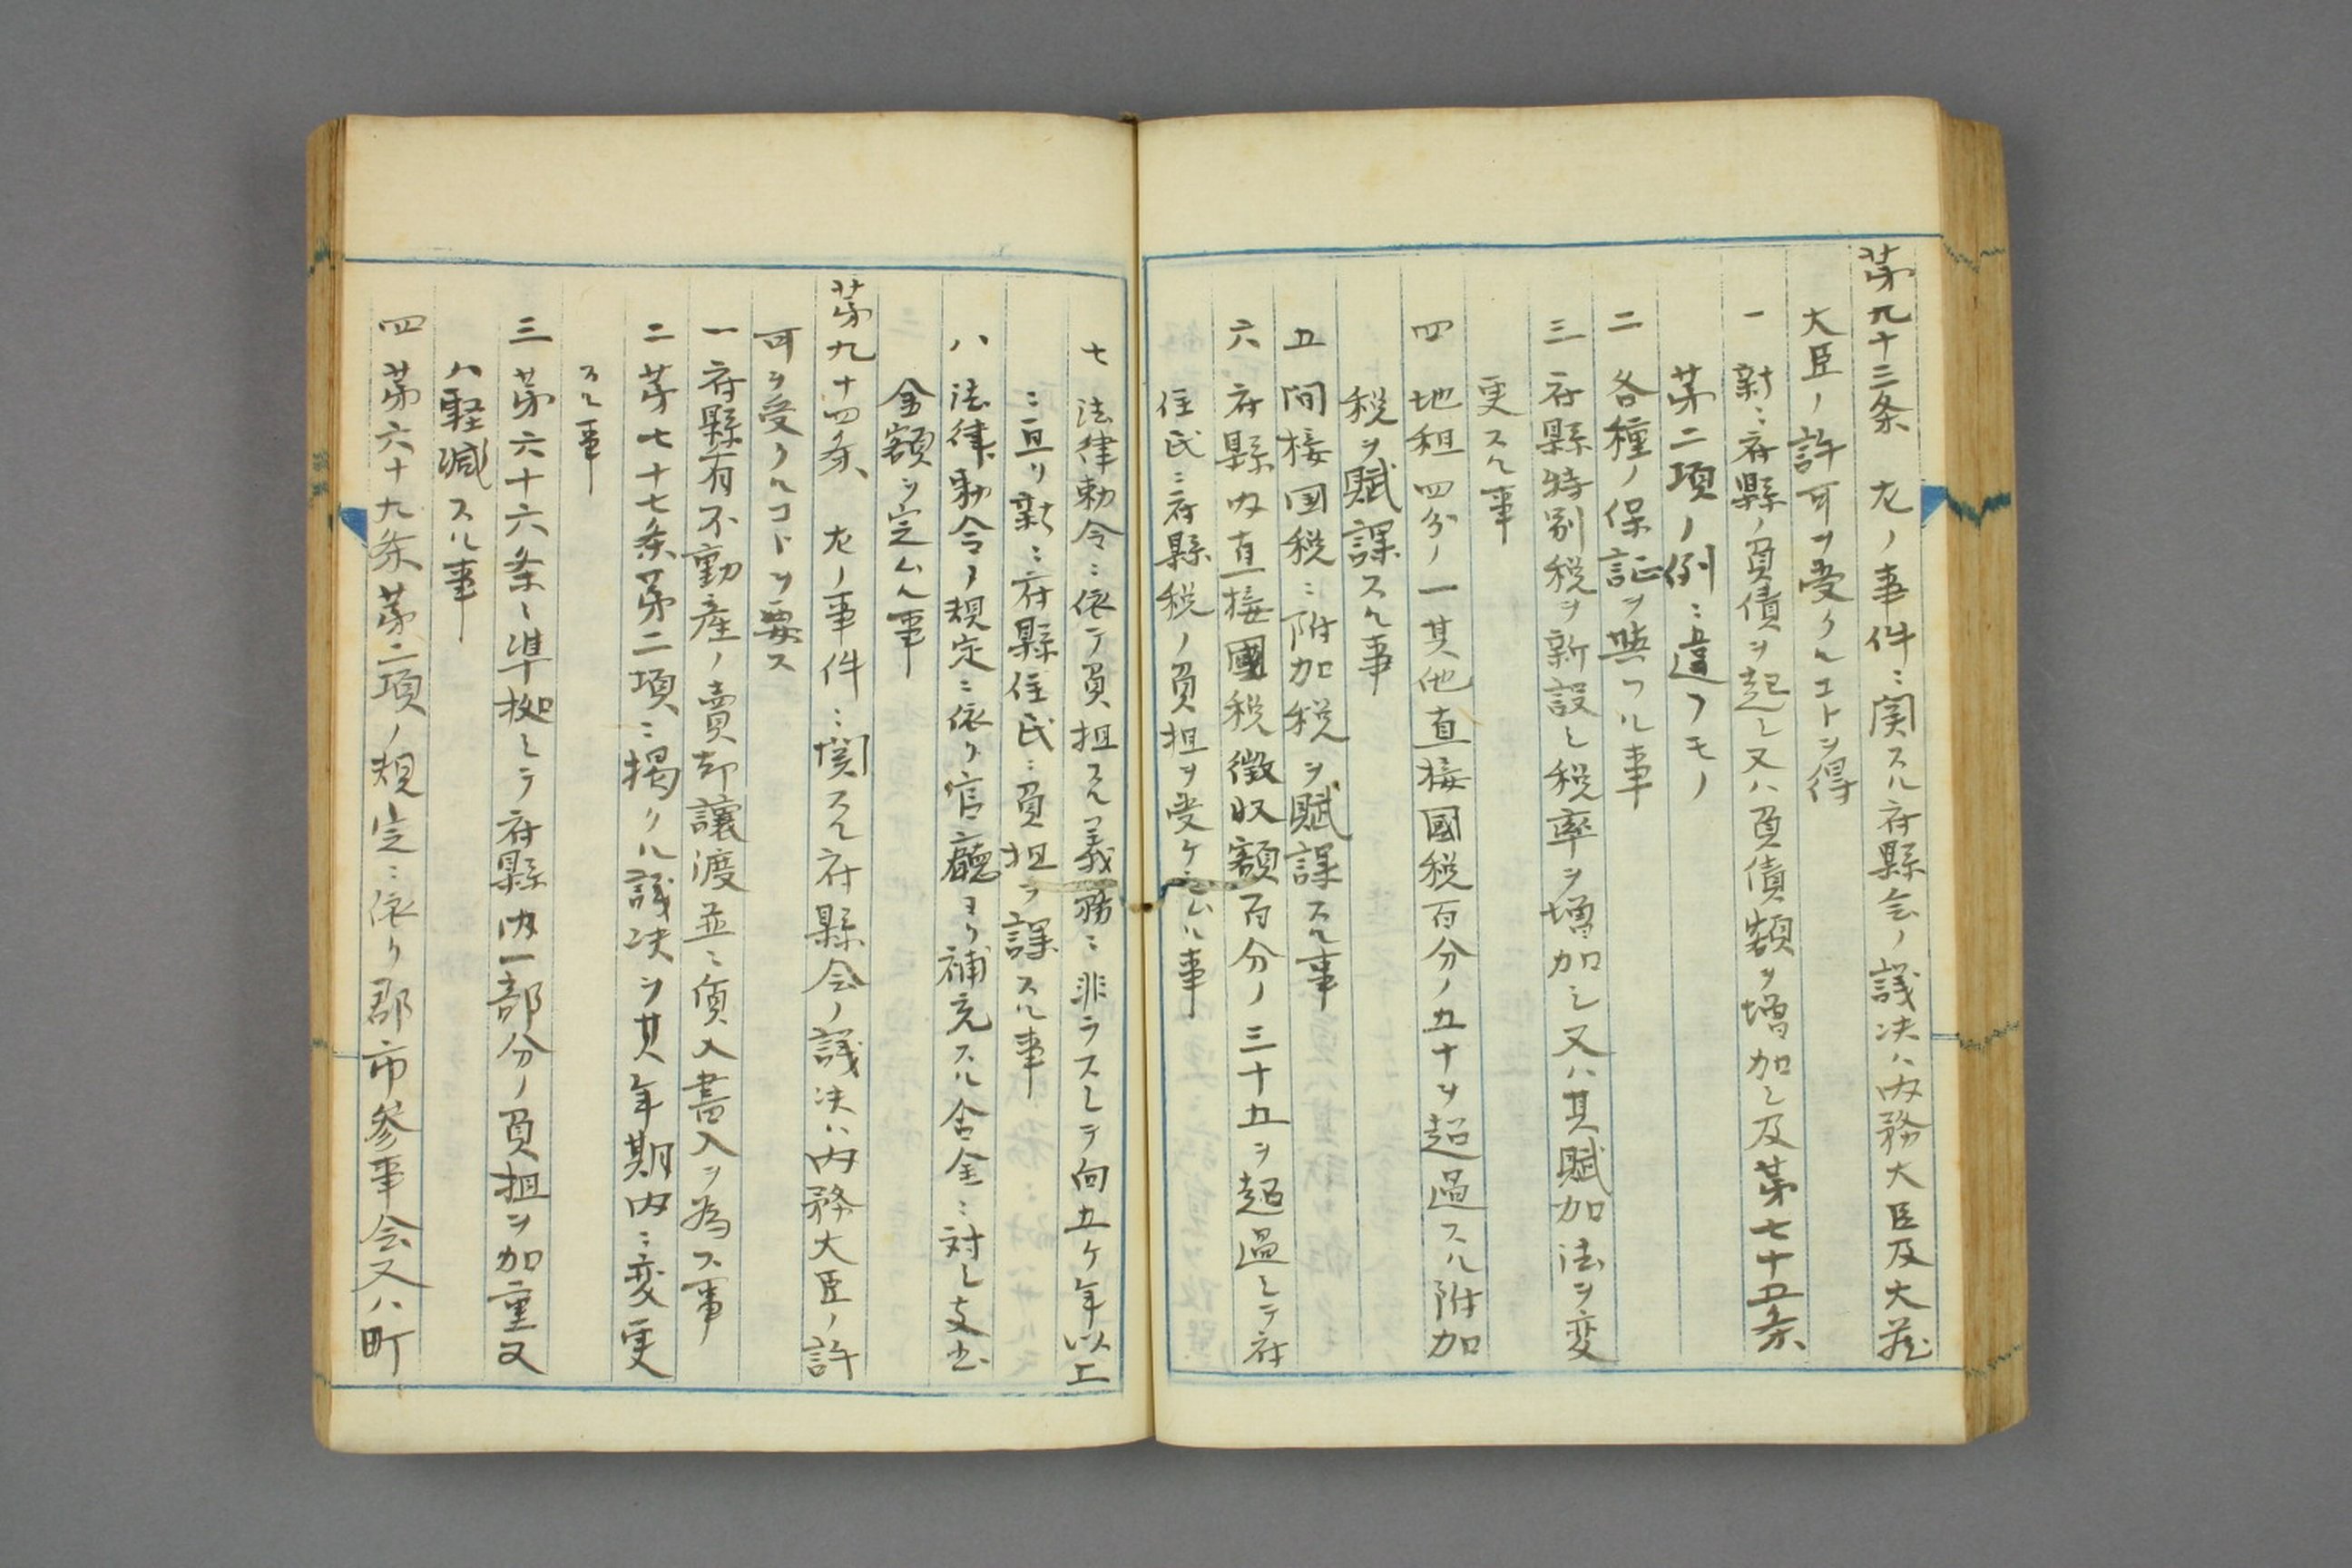 第九十三条　左ノ事件ニ関スル府縣会ノ議决ハ内務大臣及大蔵
大臣ノ許可ヲ受クルコトヲ得
一　新ニ府縣ノ負債ヲ起シ又ハ負債額ヲ増加シ及第七十五条
第二項ノ例ニ違フモノ
二　各種ノ保証ヲ與フル事
三　府縣特別税ヲ新設シ税率ヲ増加シ又ハ其賦加法ヲ変
更スル事
四　地租四分ノ一其他直接國税百分ノ五十ヲ超過スル附加
税ヲ賦課スル事
五　間接国税ニ附加税ヲ賦課スル事
六　府縣内直接國税徴収額百分ノ三十五ヲ超過シテ府
住民ニ府縣税ノ負担ヲ受ケシムル事
七　法律勅令ニ依テ負担スル義務ニ非ラスシテ向五ケ年以上
ニ亘リ新ニ府縣住民ニ負担ヲ課スル事
八　法律勅令ノ規定ニ依リ官廳ヨリ補充スル舎金ニ対シ支出
金額ヲ定ムル事
第九十四条　左ノ事件ニ関スル府縣会ノ議决ハ内務大臣ノ許
可ヲ受クルコトヲ要ス
一　府縣有不動産ノ賣却讓渡並ニ質入書入ヲ為ス事
二　第七十七条第二項ニ掲クル議决ヲ其年期内ニ変更
スル事
三　第六十六条ニ準拠シテ府縣内一部分ノ負担ヲ加重又
ハ軽减スル事
四　第六十九条第二項ノ規定ニ依リ郡市参事会又ハ町